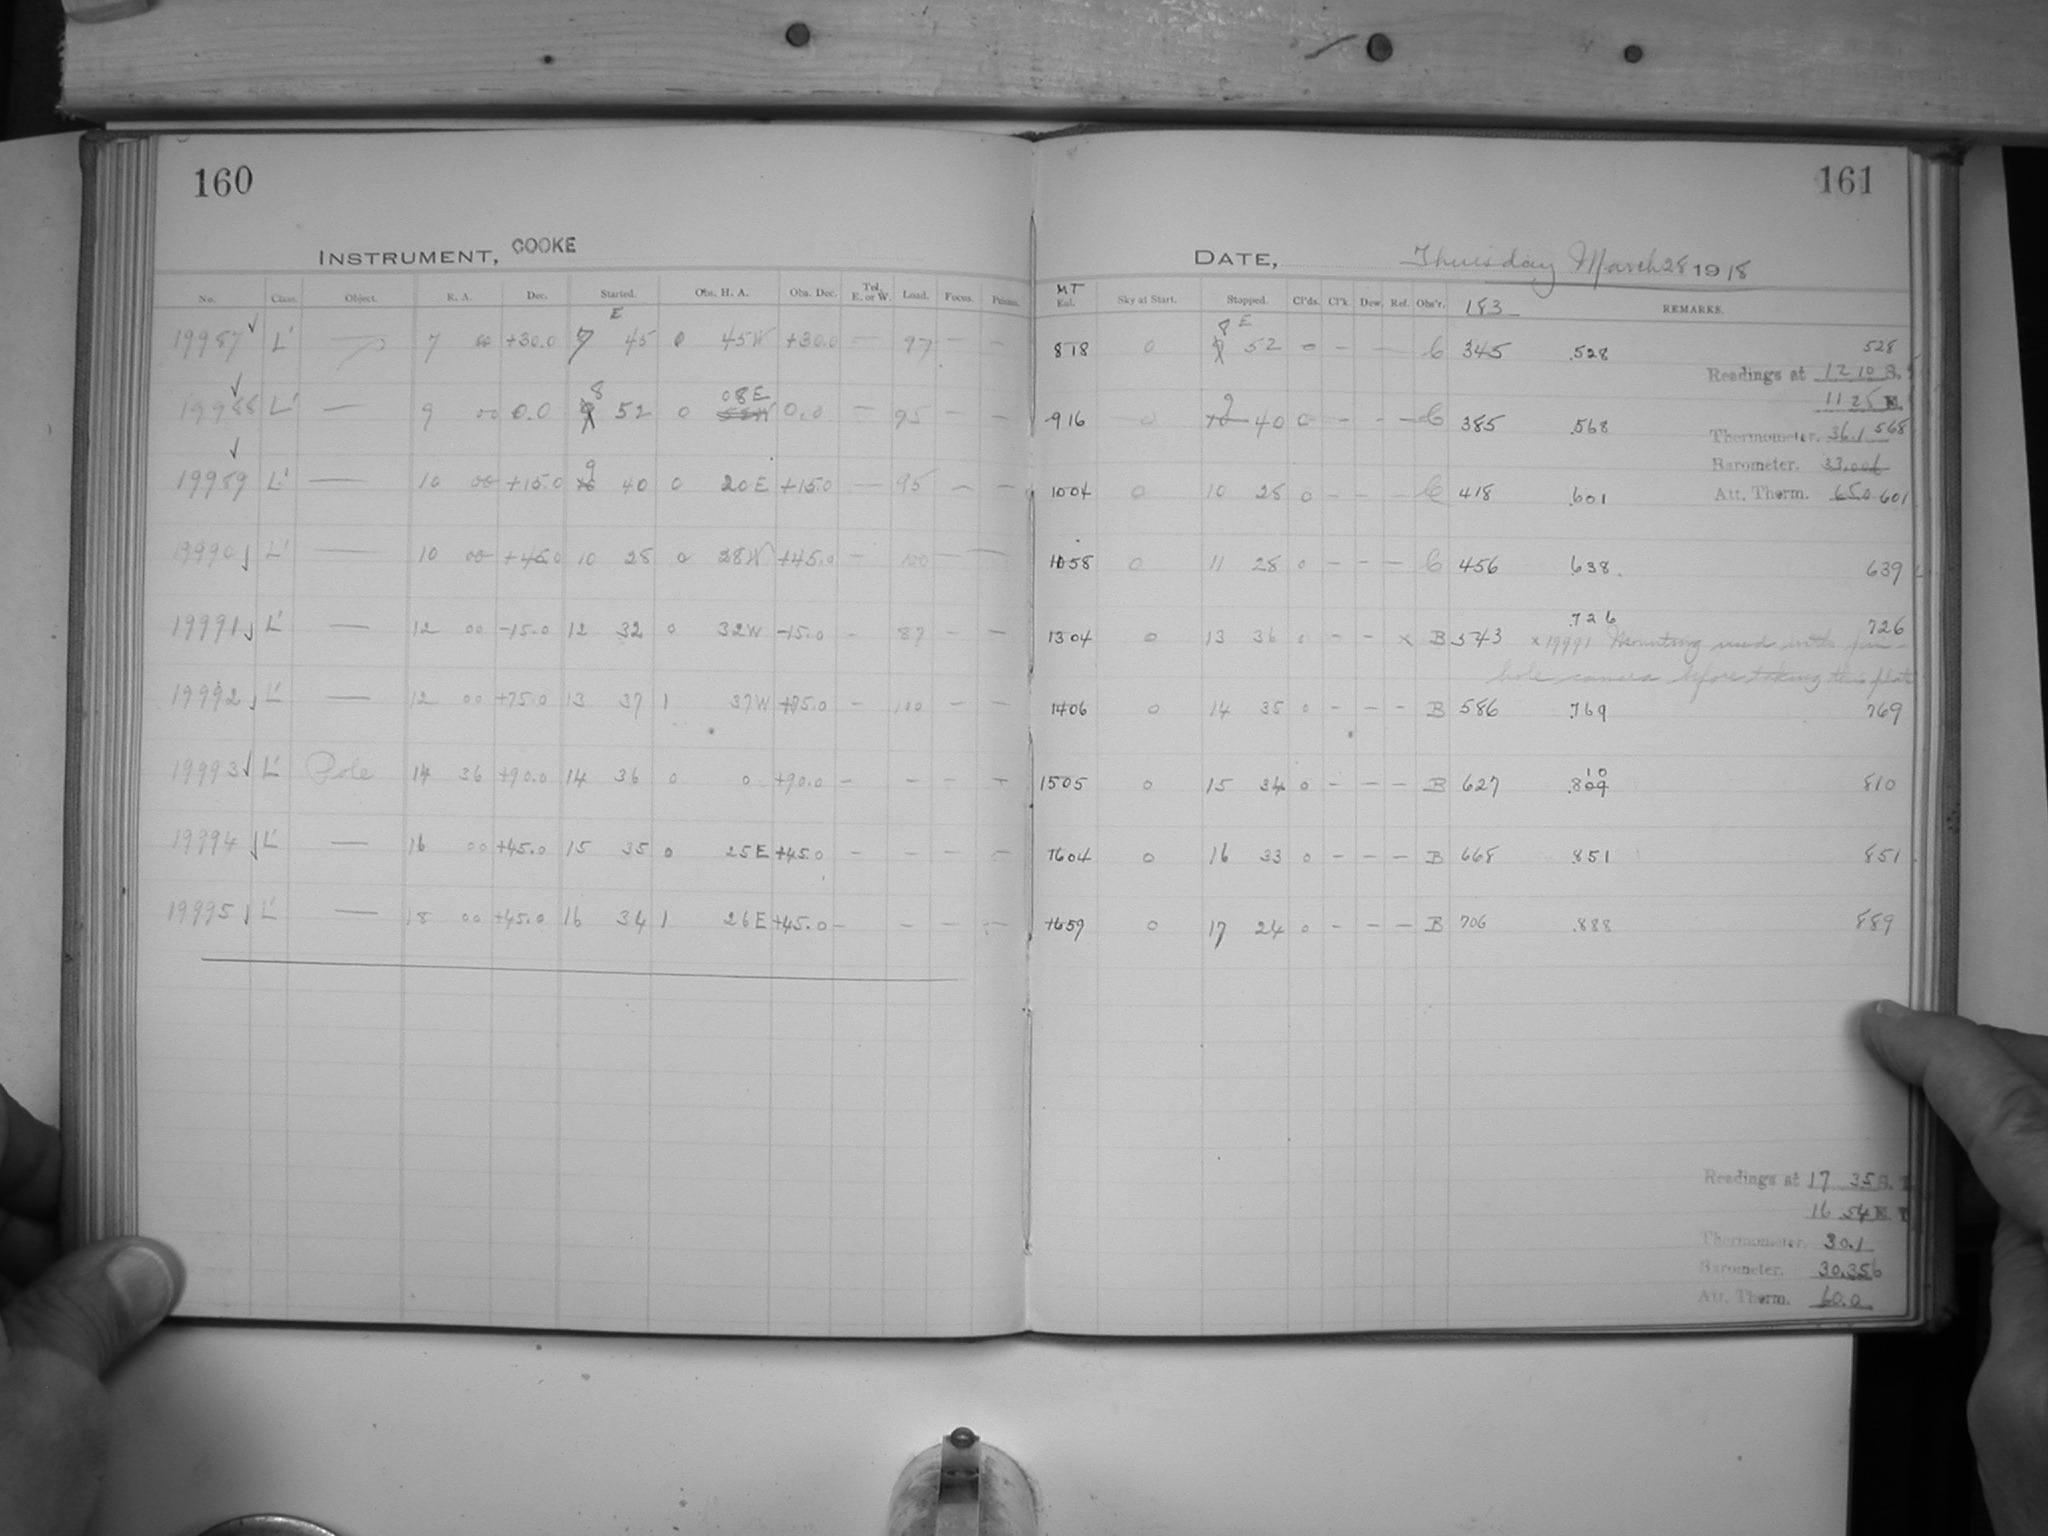 160
INSTRUMENT, COOKE
No. Class. Object. R. A. Dec. Started. Obs. H. A. Obs. Dec. Tel. E. or W. Load. Focus. Prisms.
E
19987 ✓ L' — 7 00 +30.0 7 45 0 45W +30.0 — 97 — —
8 08E
19988 ✓ L' — 9 00 0.0 9 52 0 52W 0.0 — 95 — —
9
19989 ✓ L' — 10 00 +15.0 10 40 0 20E +15.0 — 95 — —
19990 ✓ L' — 10 00 +45.0 10 28 0 28W +45.0 — 100 — —
19991 ✓ L' — 12 00 -15.0 12 32 0 32W -15.0 - 87 - —
19992 ✓ L' — 12 00 +75.0 13 37 1 37W +75.0 - 100 - —
19993 ✓ L' Pole 14 36 +90.0 14 36 0 0 +90.0 - - - -
19994 ✓ L' — 16 00 +45.0 15 35 0 25E +45.0 - - - -
19995 ✓ L' — 18 00 +45.0 16 34 1 26E +45.0 - - - -
161
DATE, Thursday March 28 1918
MT
Sky at Start. Stopped. Cl'ds. Cl'k Dew. Ref. Obs'r. 183 REMARKS.
8 E
818 0 52 0 - — C 345 .528 528
Readings at 12 10 S.
11 25
9
916 0 10 40 0 - - - C 385 .568 568
Thermometer. 36.1
Barometer.
1004 0 10 28 0 - - - C 418 .601 601
Att. Therm. 65.0
1058 0 11 28 0 - - — C 456 .638. 639
.726
1304 0 13 36 0 - - x B 543 x 19991 Mounting used with pin- 726
hole camera before taking this plate
1406 0 14 35 0 - - - B 586 .769 769
10
1505 0 15 34 0 - - - B 627 .809 810
1604 0 16 33 0 - - - B 668 .851 851
1659 0 17 24 0 - - - B 706 .888 889
Readings at 17 35 S.
16 54
Thermometer. 30.1
Barometer. 30.356
Att. Therm. 60.0